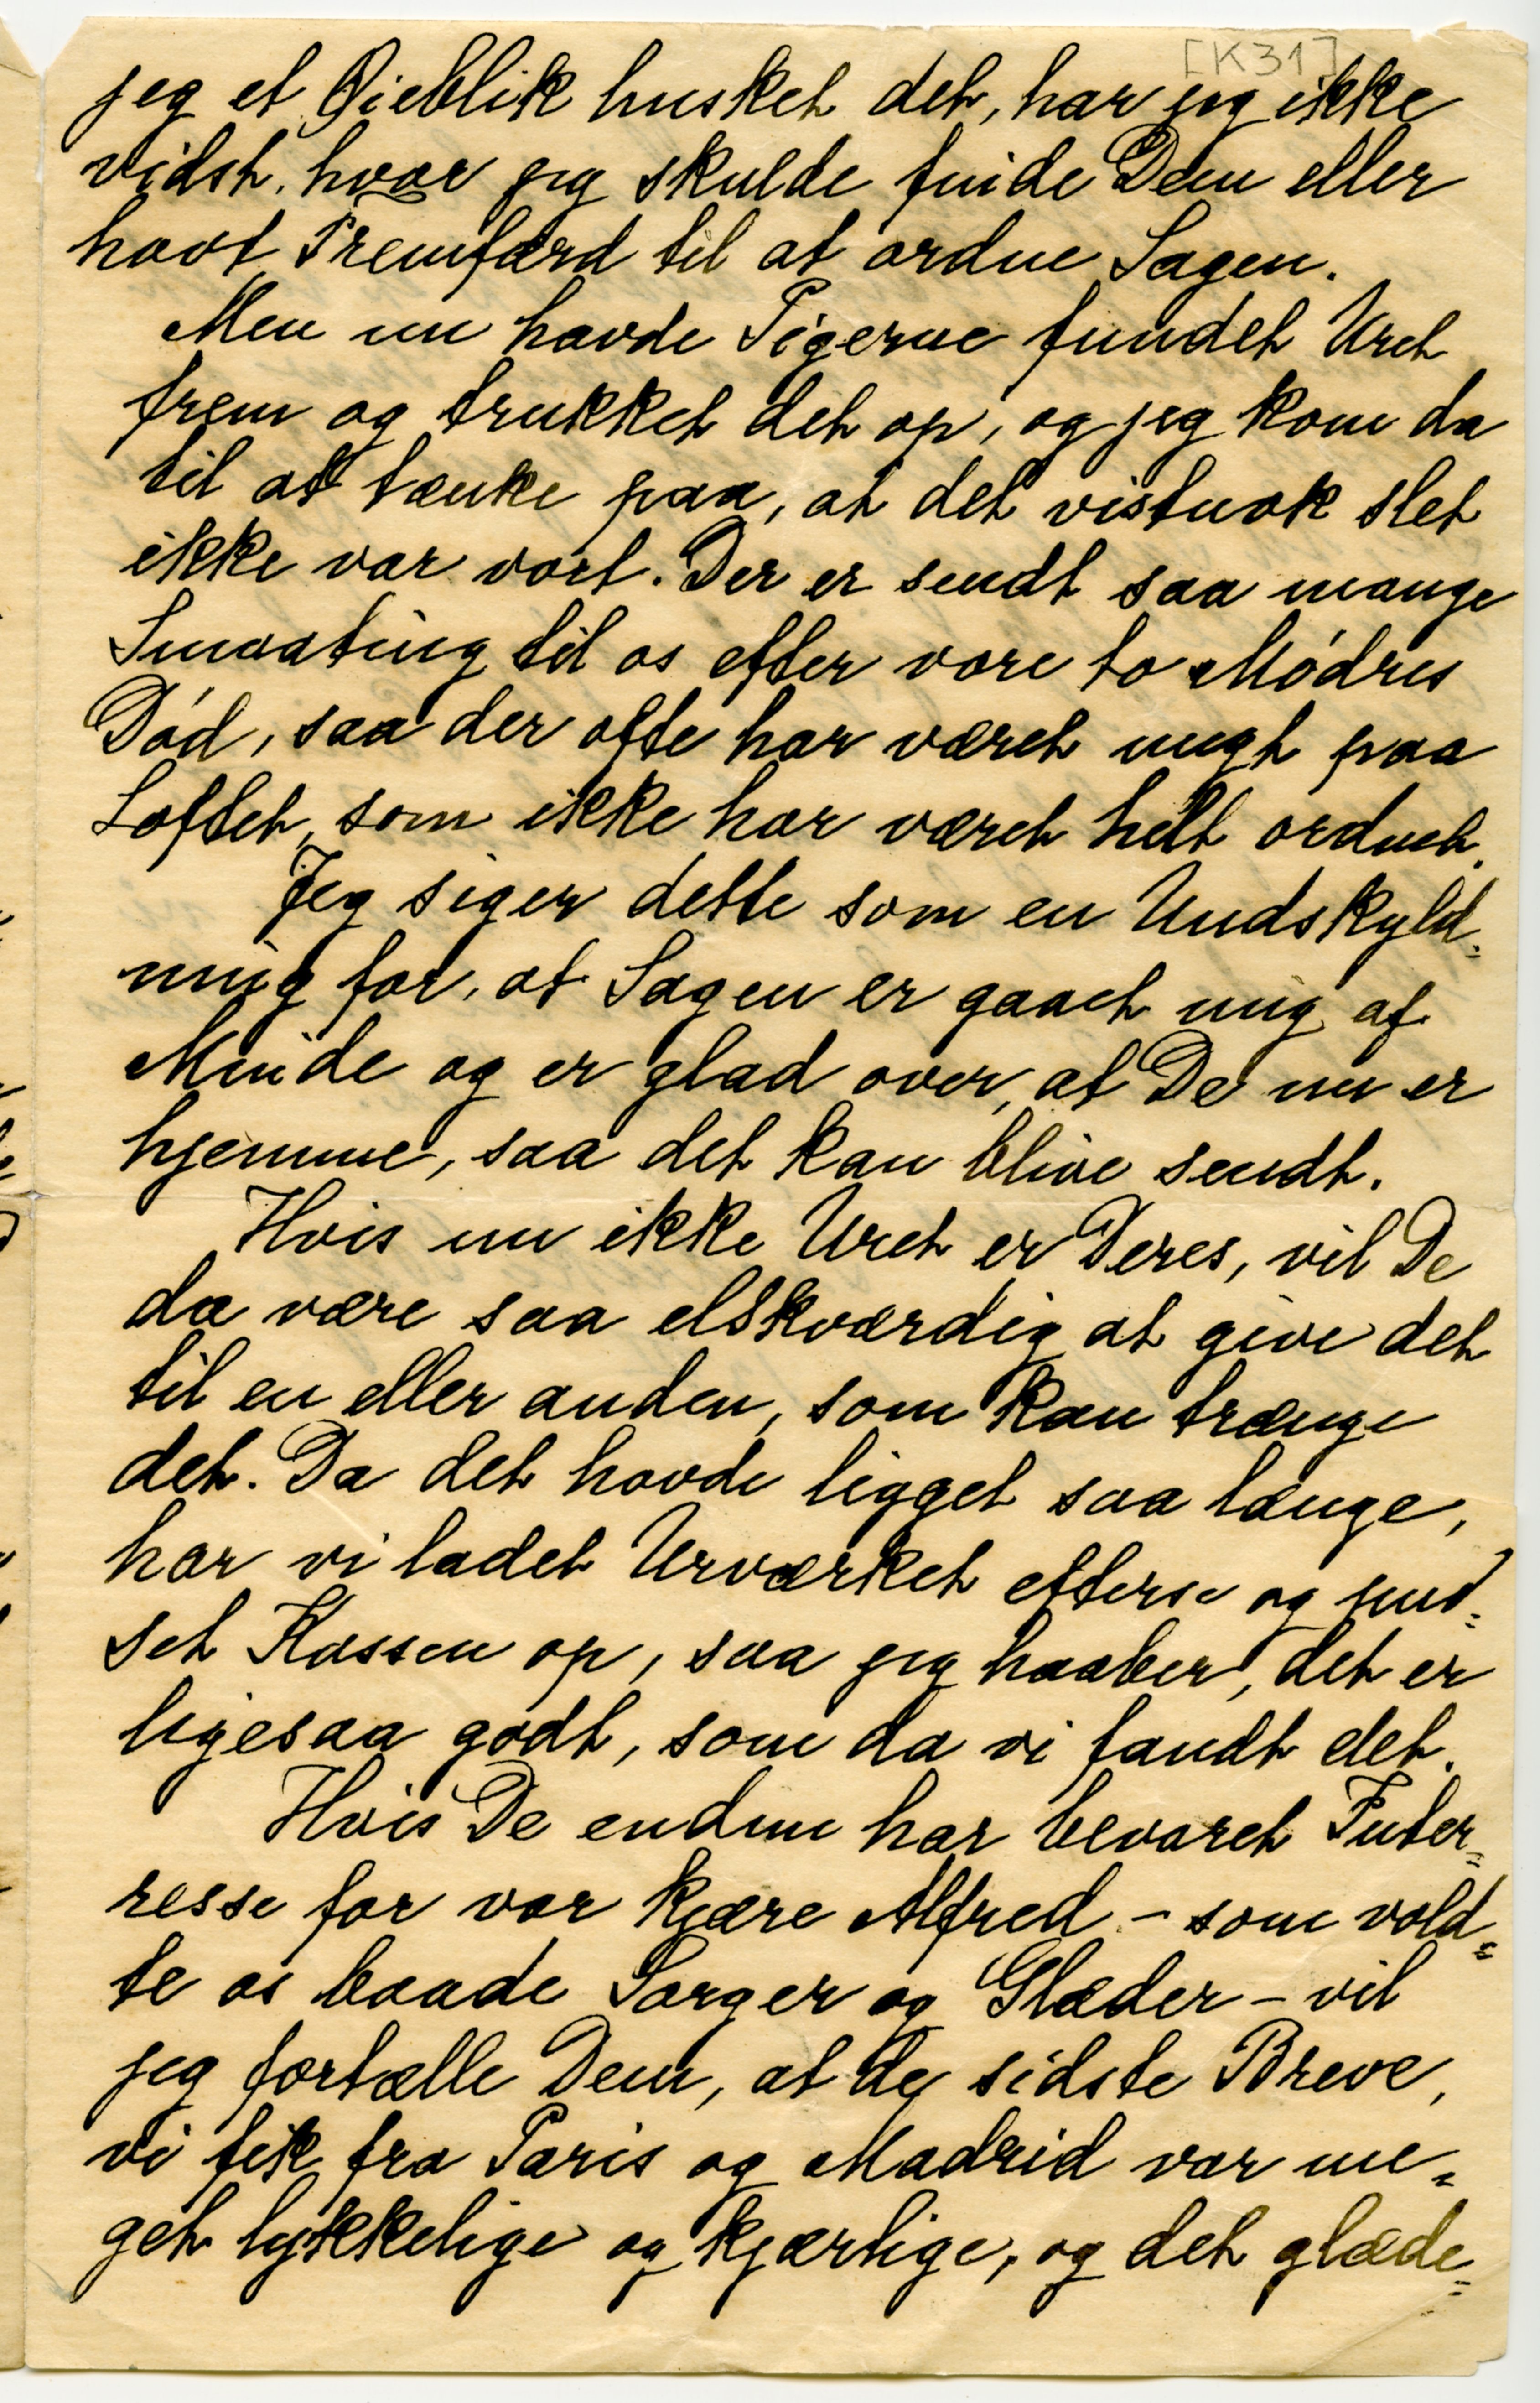 [K31]
jeg et Øieblik husket det, har jeg ikke
vidst, hvor jeg skulde finde Dem eller
havt Fremfærd til at ordne Sagen.
Men nu havde Pigerne fundet Uret
frem og trukket det op, og jeg kom da
til at tænke paa, at det vistnok slet
ikke var vort. Der er sendt saa mange
Smaating til os efter vore to Mødres
Død, saa der ofte har været meget paa
Loftet, som ikke har været helt ordnet.
Jeg siger dette som en Undskyld=
ning for, at Sagen er gaaet mig af
Minde og er glad over, at De nu er
hjemme, saa det kan blive sendt.
Hvis nu ikke Uret er Deres, vil De
da være saa elskværdig at give det
til en eller anden, som kan trænge
det. Da det havde ligget saa længe,
har vi ladet Urværket efterse og pud=
set Kassen op, saa jeg haaber, det er
ligesaa godt, som da vi fandt det.
Hvis De endnu har bevaret Inter=
resse for vor kjære Alfred – som vold=
te os baade Sorger og Glæder – vil
jeg fortælle Dem, at de sidste Breve,
vi fik fra Paris og Madrid var me=
get lykkelige og kjærlige, og det glæde=